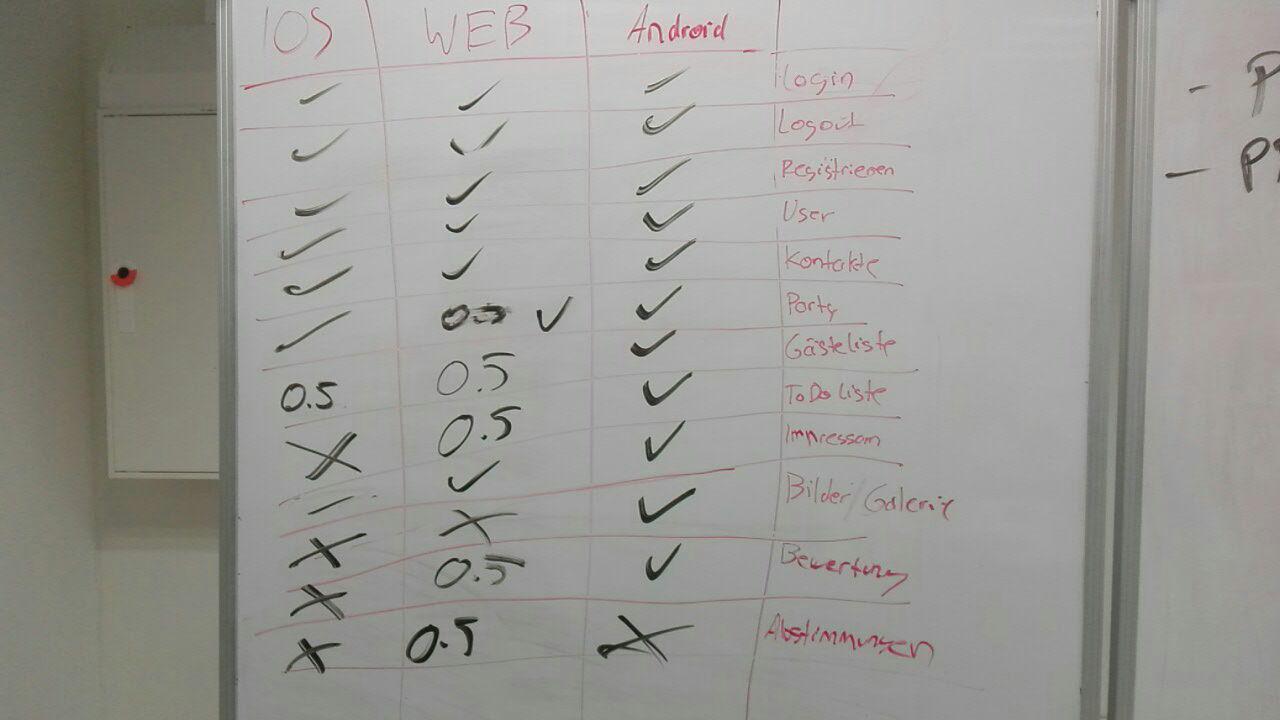 IOS WEB Android
✓ ✓ ✓ Login
✓ ✓ ✓ Logout
✓ ✓ ✓ Registrieren
✓ ✓ ✓ User
✓ ✓ ✓ Kontakte
✓ 0.5 ✓ ✓ Party
0.5 0.5 ✓ Gästeliste
X 0.5 ✓ ToDo Liste
– ✓ ✓ Impressum
X X ✓ Bilder/Galerie
X 0.5 ✓ Bewertung
X 0.5 X Abstimmungen
- P
- P